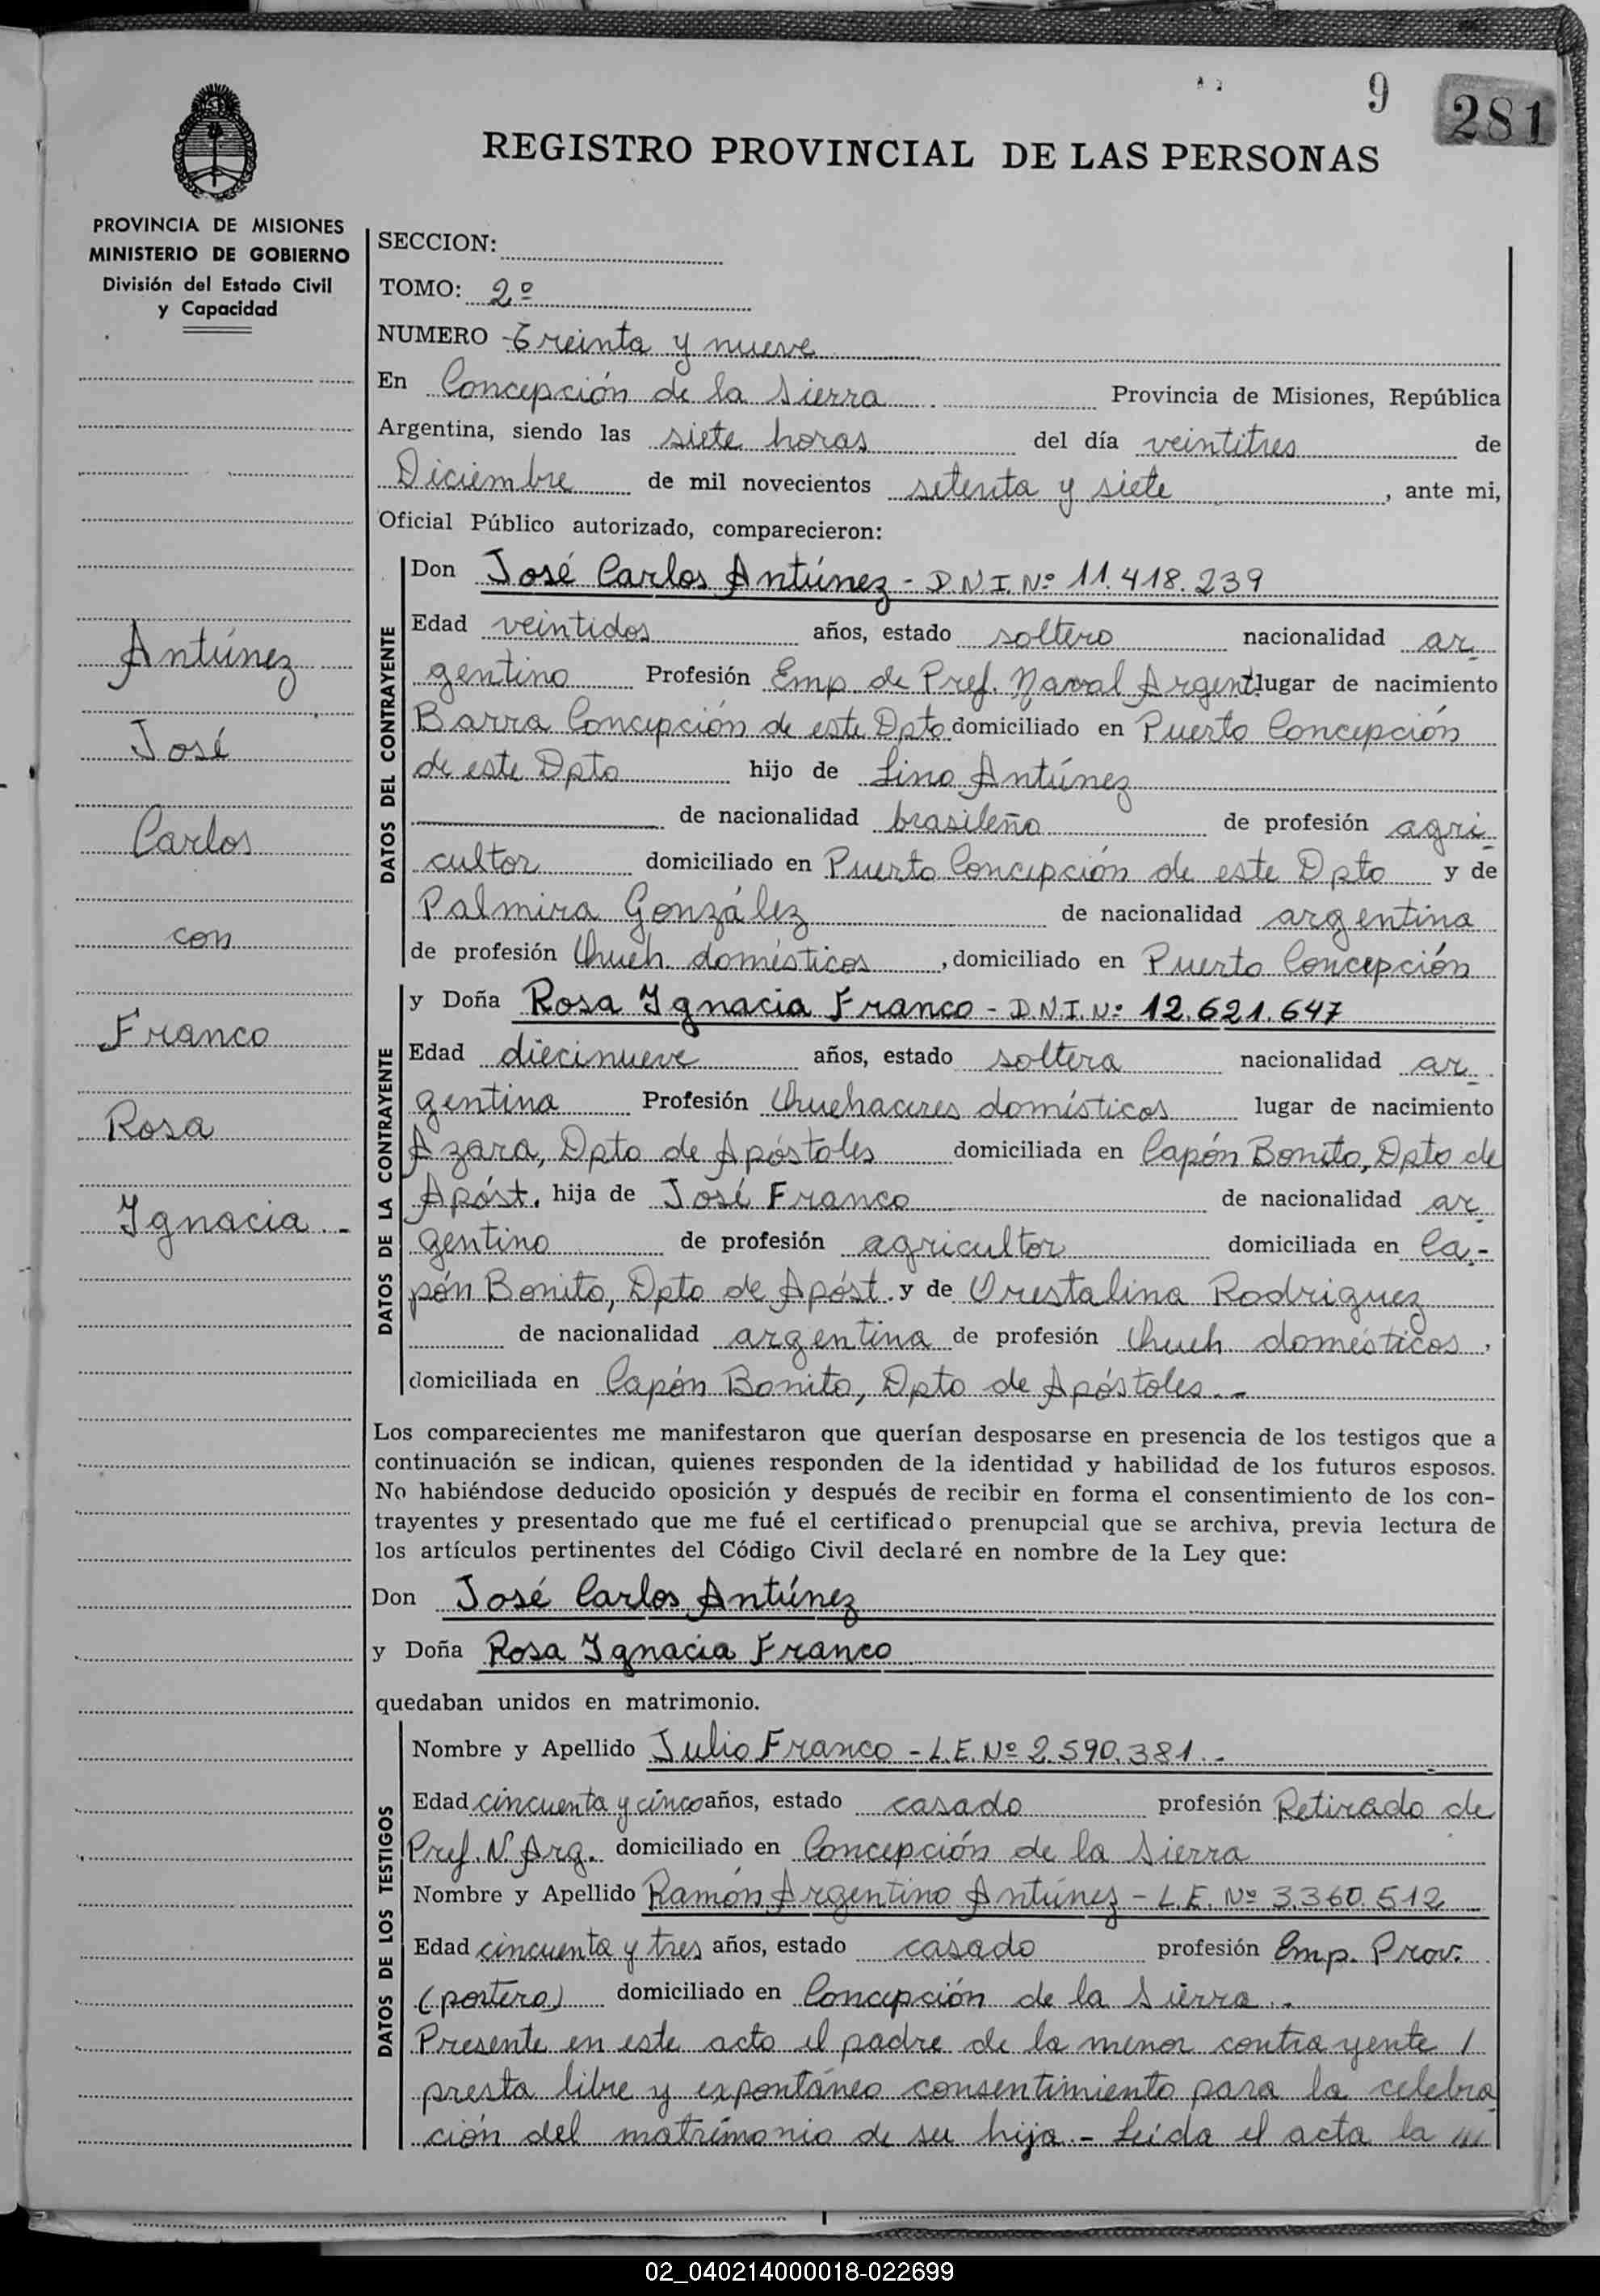 9
281
REGISTRO PROVINCIAL DE LAS PERSONAS
PROVINCIA DE MISIONES
MINISTERIO DE GOBIERNO
División del Estado Civil
y Capacidad
Antúnez
José
Carlos
con
Franco
Rosa
Ignacia.-
SECCION:
TOMO: 2º
NUMERO Treinta y nueve
En Concepción de la Sierra Provincia de Misiones, República
Argentina, siendo las siete horas del día veintitres de
Diciembre de mil novecientos setenta y siete, ante mi,
Oficial Público autorizado, comparecieron:
DATOS DEL CONTRAYENTE
Don José Carlos Antúnez - D.N.I. Nº 11.418.239
Edad veintidos años, estado soltero nacionalidad ar-
gentino Profesión Emp. de Pref. Naval Argent. lugar de nacimiento
Barra Concepción de este Dpto domiciliado en Puerto Concepción
de este Dpto hijo de Lino Antúnez
de nacionalidad brasileño de profesión agri-
cultor domiciliado en Puerto Concepción de este Dpto y de
Palmira González de nacionalidad argentina
de profesión Queh. domésticos, domiciliado en Puerto Concepción
DATOS DE LA CONTRAYENTE
y Doña Rosa Ignacia Franco - D.N.I. Nº 12.621.647
Edad diecinueve años, estado soltera nacionalidad ar-
gentina Profesión Quehaceres domésticos lugar de nacimiento
Azara, Dpto de Apóstoles domiciliada en Capón Bonito, Dpto de
Apóst. hija de José Franco de nacionalidad ar-
gentino de profesión agricultor domiciliada en Ca-
pón Bonito, Dpto de Apóst. y de Orestalina Rodriguez
de nacionalidad argentina de profesión Queh domésticos,
domiciliada en Capón Bonito, Dpto de Apóstoles.-
Los comparecientes me manifestaron que querían desposarse en presencia de los testigos que a
continuación se indican, quienes responden de la identidad y habilidad de los futuros esposos.
No habiéndose deducido oposición y después de recibir en forma el consentimiento de los con-
trayentes y presentado que me fué el certificado prenupcial que se archiva, previa lectura de
los artículos pertinentes del Código Civil declaré en nombre de la Ley que:
Don José Carlos Antúnez
y Doña Rosa Ignacia Franco
quedaban unidos en matrimonio.
DATOS DE LOS TESTIGOS
Nombre y Apellido Julio Franco - L.E. Nº 2.590.381.-
Edad cincuenta y cinco años, estado casado profesión Retirado de
Pref. N. Arg. domiciliado en Concepción de la Sierra
Nombre y Apellido Ramón Argentino Antúnez - L.E. Nº 3.360.512
Edad cincuenta y tres años, estado casado profesión Emp. Prov.
(portero) domiciliado en Concepción de la Sierra.-
Presente en este acto el padre de la menor contrayente /
presta libre y expontáneo consentimiento para la celebra-
ción del matrimonio de su hija.- Leída el acta la ///
02_040214000018-022699